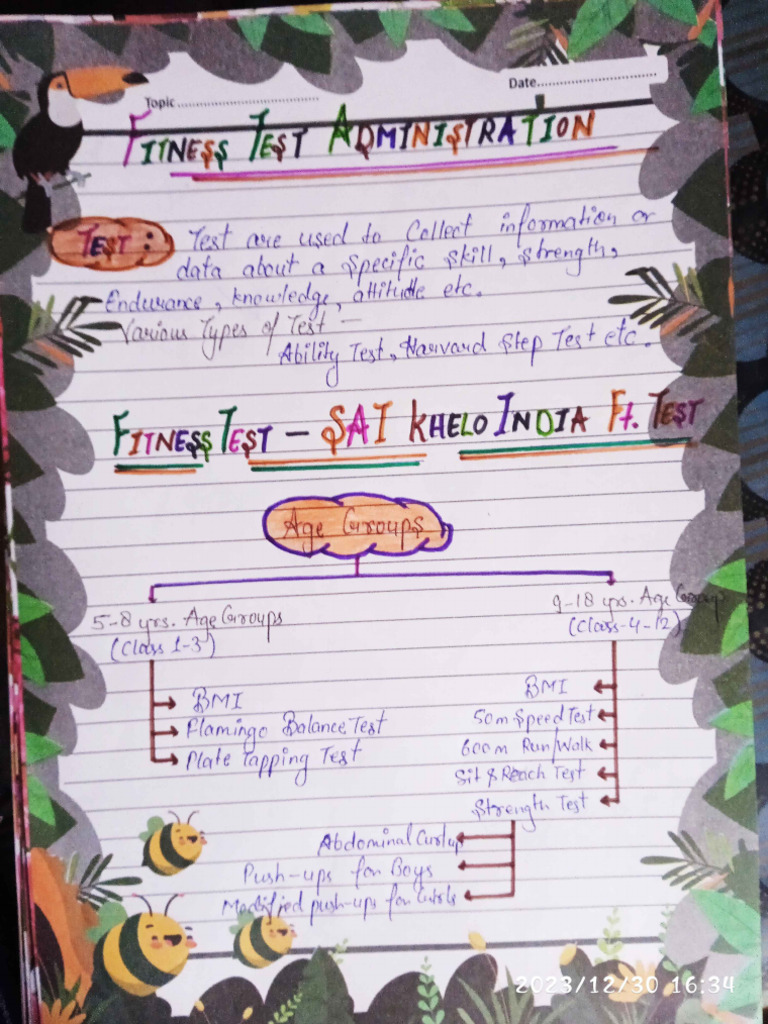 Topic
Date
FITNESS TEST ADMINISTRATION
TEST : Test are used to Collect information or
data about a specific skill, strength,
Endurance, knowledge, attitude etc.
Various Types of Test —
Ability Test, Harvard Step Test etc.
FITNESS TEST — SAI KHELO INDIA Ft. TEST
Age Groups
5-8 yrs. Age Groups
(Class 1-3)
BMI
Flamingo Balance Test
Plate Tapping Test
9-18 yrs. Age Group
(Class-4-12)
BMI
50m Speed Test
600m Run/Walk
Sit & Reach Test
Strength Test
Abdominal Curlup
Push-ups for Boys
Modified push-ups for Girls
2023/12/30 16:34